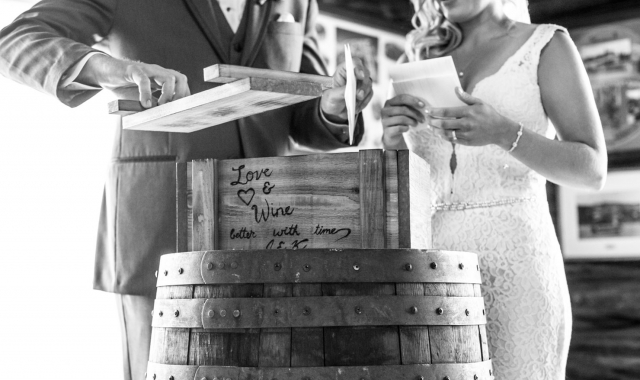 Love
&
Wine
better with time
J & K